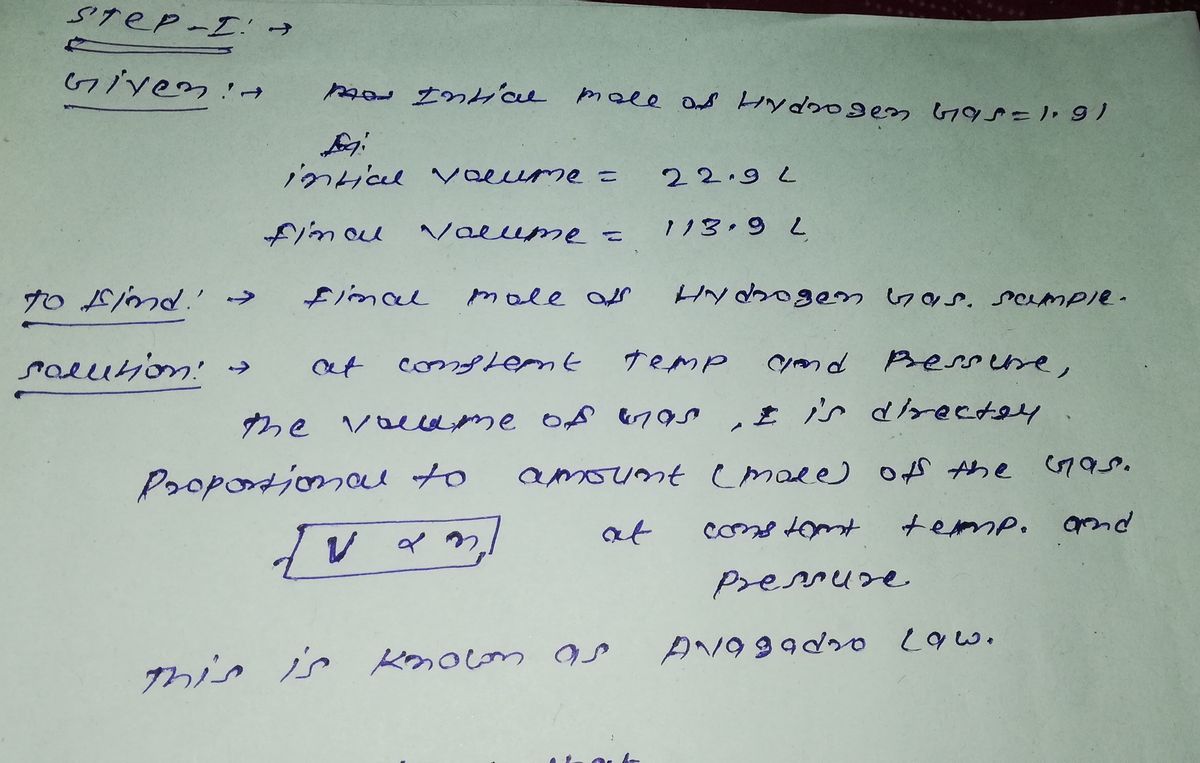 STEP-I: →
Given:→ Intial mole of Hydrogen Gas=1.91
intial volume = 22.9 L
final volume = 113.9 L
To find: → final mole of Hydrogen Gas. sample.
solution: → at constemt Temp and Pressure,
The volume of Gas, is directly
Proportional to amount (mole) of the Gas.
V ∝ n, at constant temp. and
Pressure
This is Known as Avagadro Law.
that